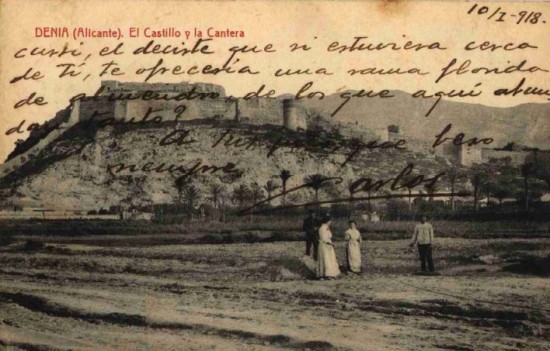 DENIA (Alicante). El Castillo y la Cantera
10/I-918.
cursi, el decirte que si estuviera cerca
de Tí, te ofrecería una rama florida
de almendro, de los que aquí abun
dan tanto?
A tí que que beso
siempre
Carlos